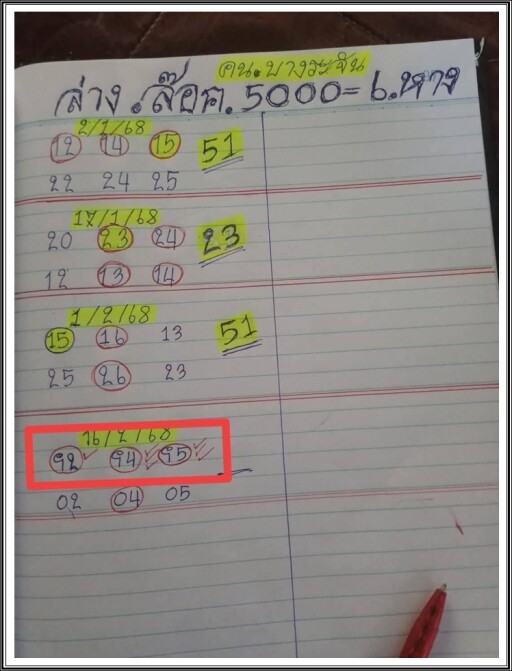 คน.บางระจัน
ล่าง.ล๊อค.5000=6.หาง
2/1/68
12 14 15 51
22 24 25
17/1/68
20 23 24 23
12 13 14
1/2/68
15 16 13 51
25 26 23
16/2/68
92 94 95
02 04 05